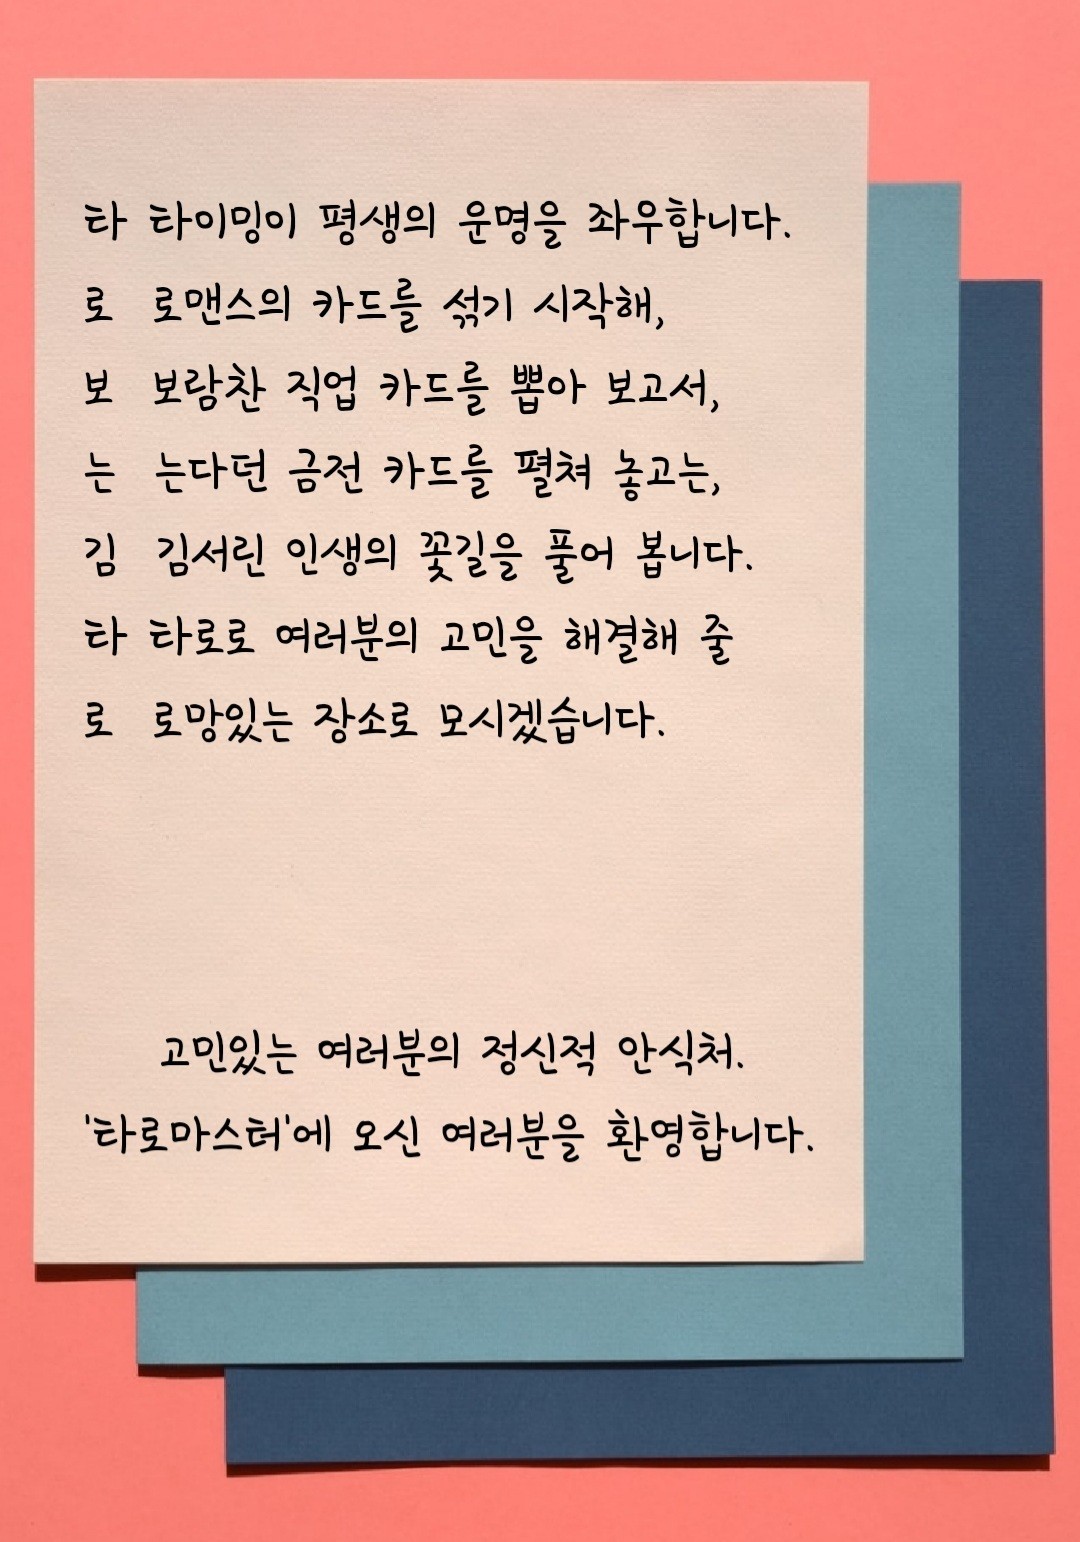 타 타이밍이 평생의 운명을 좌우합니다.
로 로맨스의 카드를 섞기 시작해,
보 보람찬 직업 카드를 뽑아 보고서,
는 는다던 금전 카드를 펼쳐 놓고는,
김 김서린 인생의 꽃길을 풀어 봅니다.
타 타로로 여러분의 고민을 해결해 줄
로 로망있는 장소로 모시겠습니다.
고민있는 여러분의 정신적 안식처.
'타로마스터'에 오신 여러분을 환영합니다.